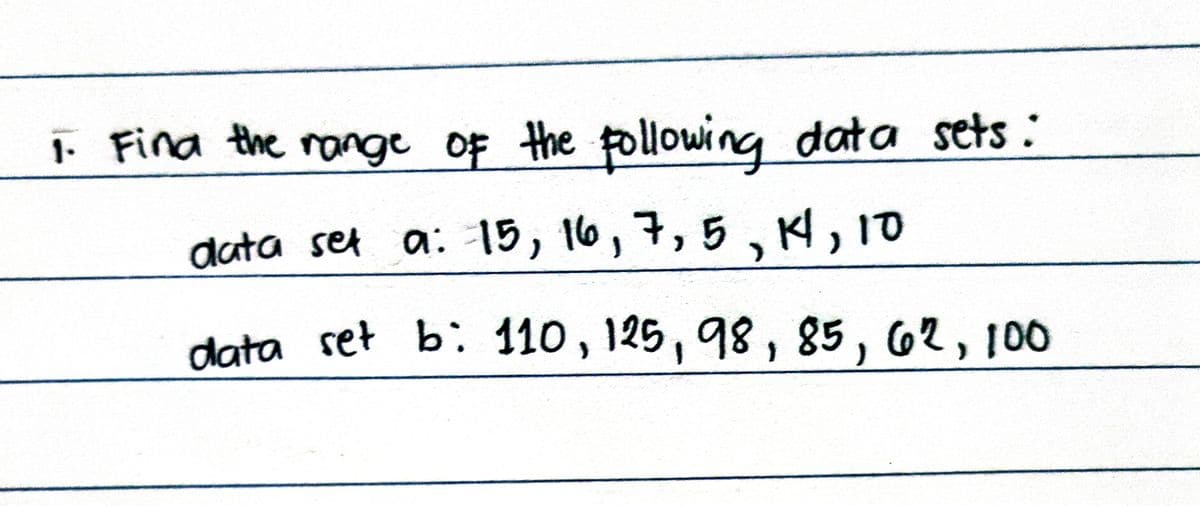 1. Find the range of the following data sets:
data set a: 15, 16, 7, 5, 14, 10
data set b: 110, 125, 98, 85, 62, 100